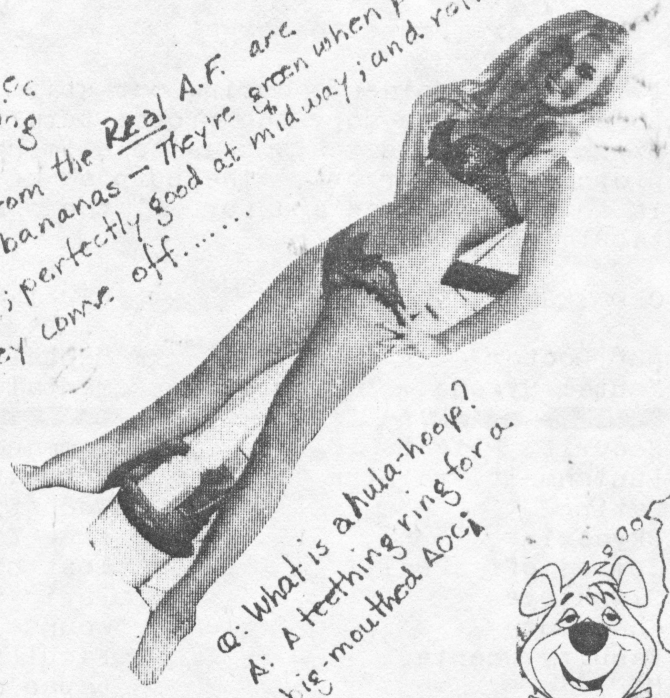 from the Real A.F. are
bananas - They're green when
; perfectly good at midway; and
come off........
Q: What is a hula-hoop?
A: A teething ring for a
big-mouthed AOC!